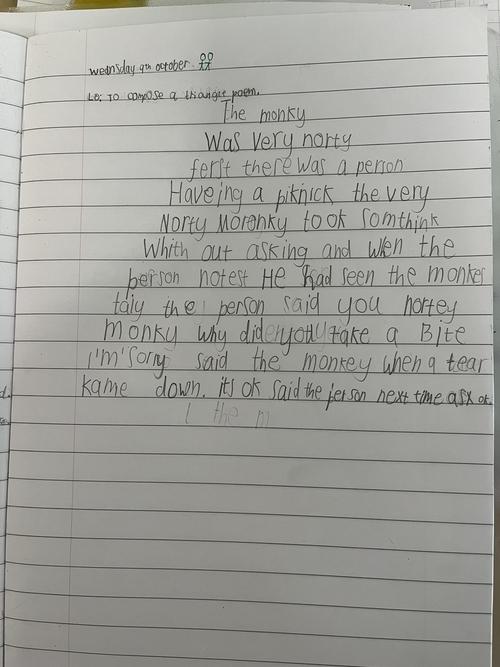 Wednesday 9th October.
LO: To compose a triangle poem.
The monky
Was very norty
ferst there was a person
Haveing a piknick the very
Norty Moronky took somthink
Whith out asking and when the
person notest He had seen the monkes
taly the person said you nortey
monky why did you take a Bite
I'm sorry said the monkey when a tear
kame down. its ok said the person next time ask ok.
the m